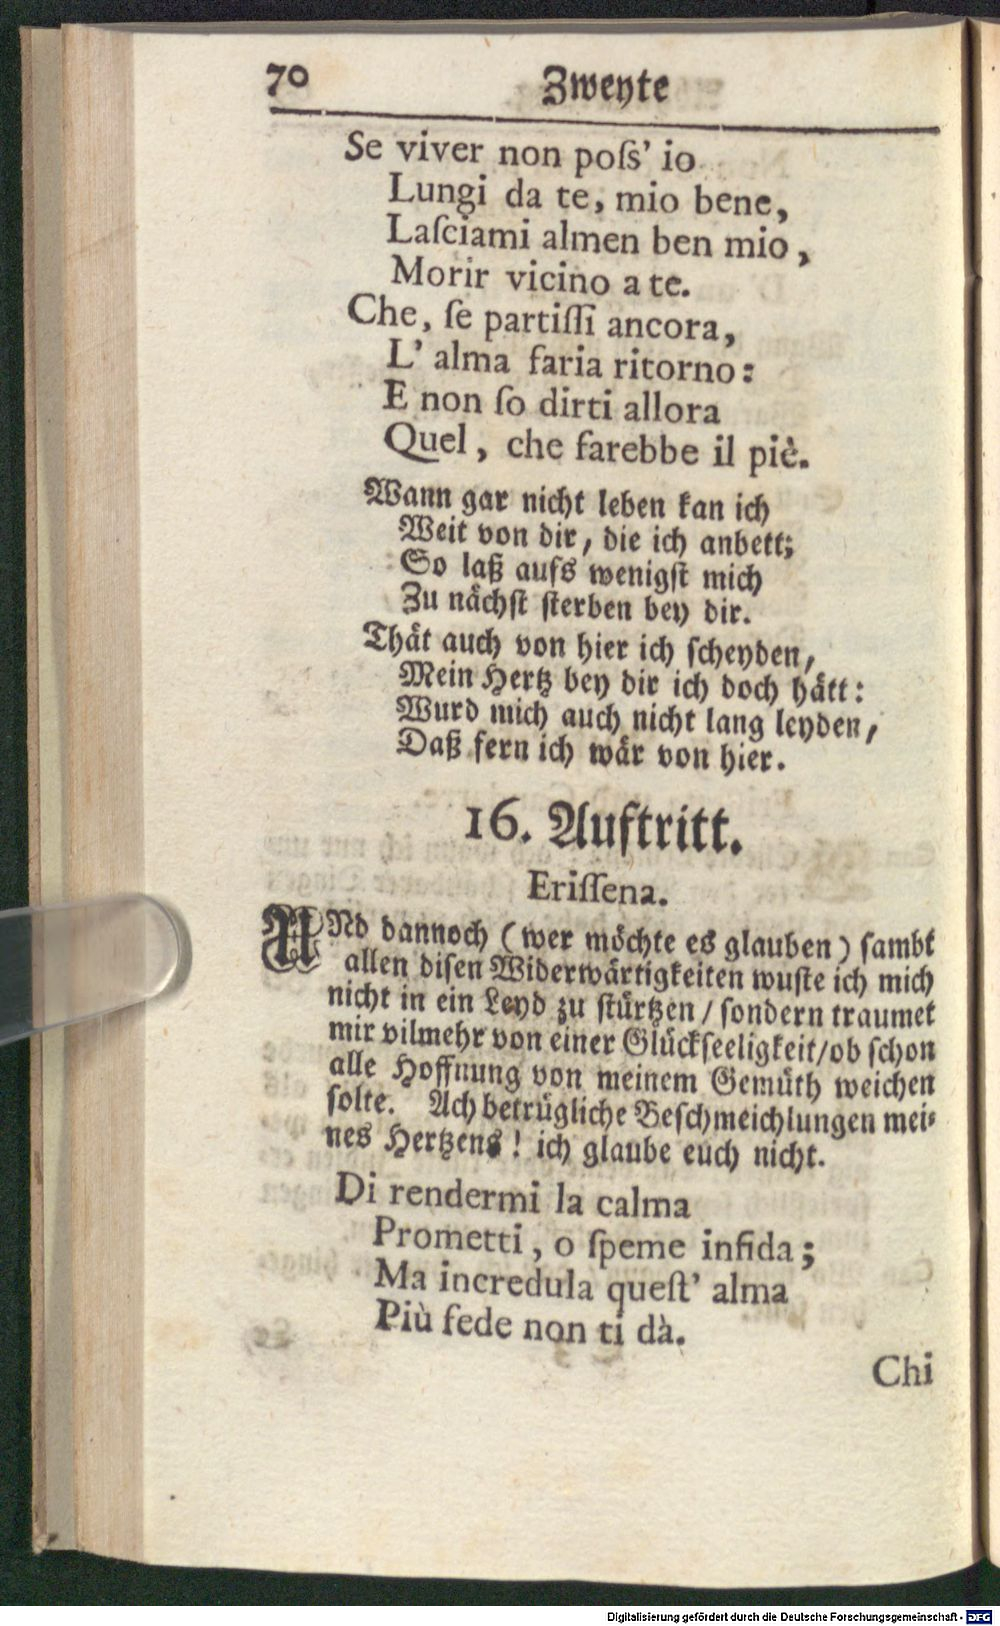 70 Zweyte
Se viver non poſs' io
Lungi da te, mio bene,
Laſciami almen ben mio,
Morir vicino a te.
Che, ſe partiſſi ancora,
L' alma faria ritorno:
E non ſo dirti allora
Quel, che farebbe il piè.
Wann gar nicht leben kan ich
Weit von dir, die ich anbett;
So laß aufs wenigſt mich
Zu nächſt ſterben bey dir.
Thät auch von hier ich ſcheyden,
Mein Hertz bey dir ich doch hätt:
Wurd mich auch nicht lang leyden,
Daß fern ich wär von hier.
16. Auftritt.
Eriſſena.
UNd dannoch (wer möchte es glauben) ſambt
allen diſen Widerwärtigkeiten wuſte ich mich
nicht in ein Leyd zu ſtürtzen / ſondern traumet
mir vilmehr von einer Glückſeeligkeit/ob ſchon
alle Hoffnung von meinem Gemüth weichen
ſolte. Ach betrügliche Beſchmeichlungen mei⸗
nes Hertzens! ich glaube euch nicht.
Di rendermi la calma
Prometti, o ſpeme infida;
Ma incredula queſt' alma
Più fede non ti dà.
Chi
Digitalisierung gefördert durch die Deutsche Forschungsgemeinschaft - DFG